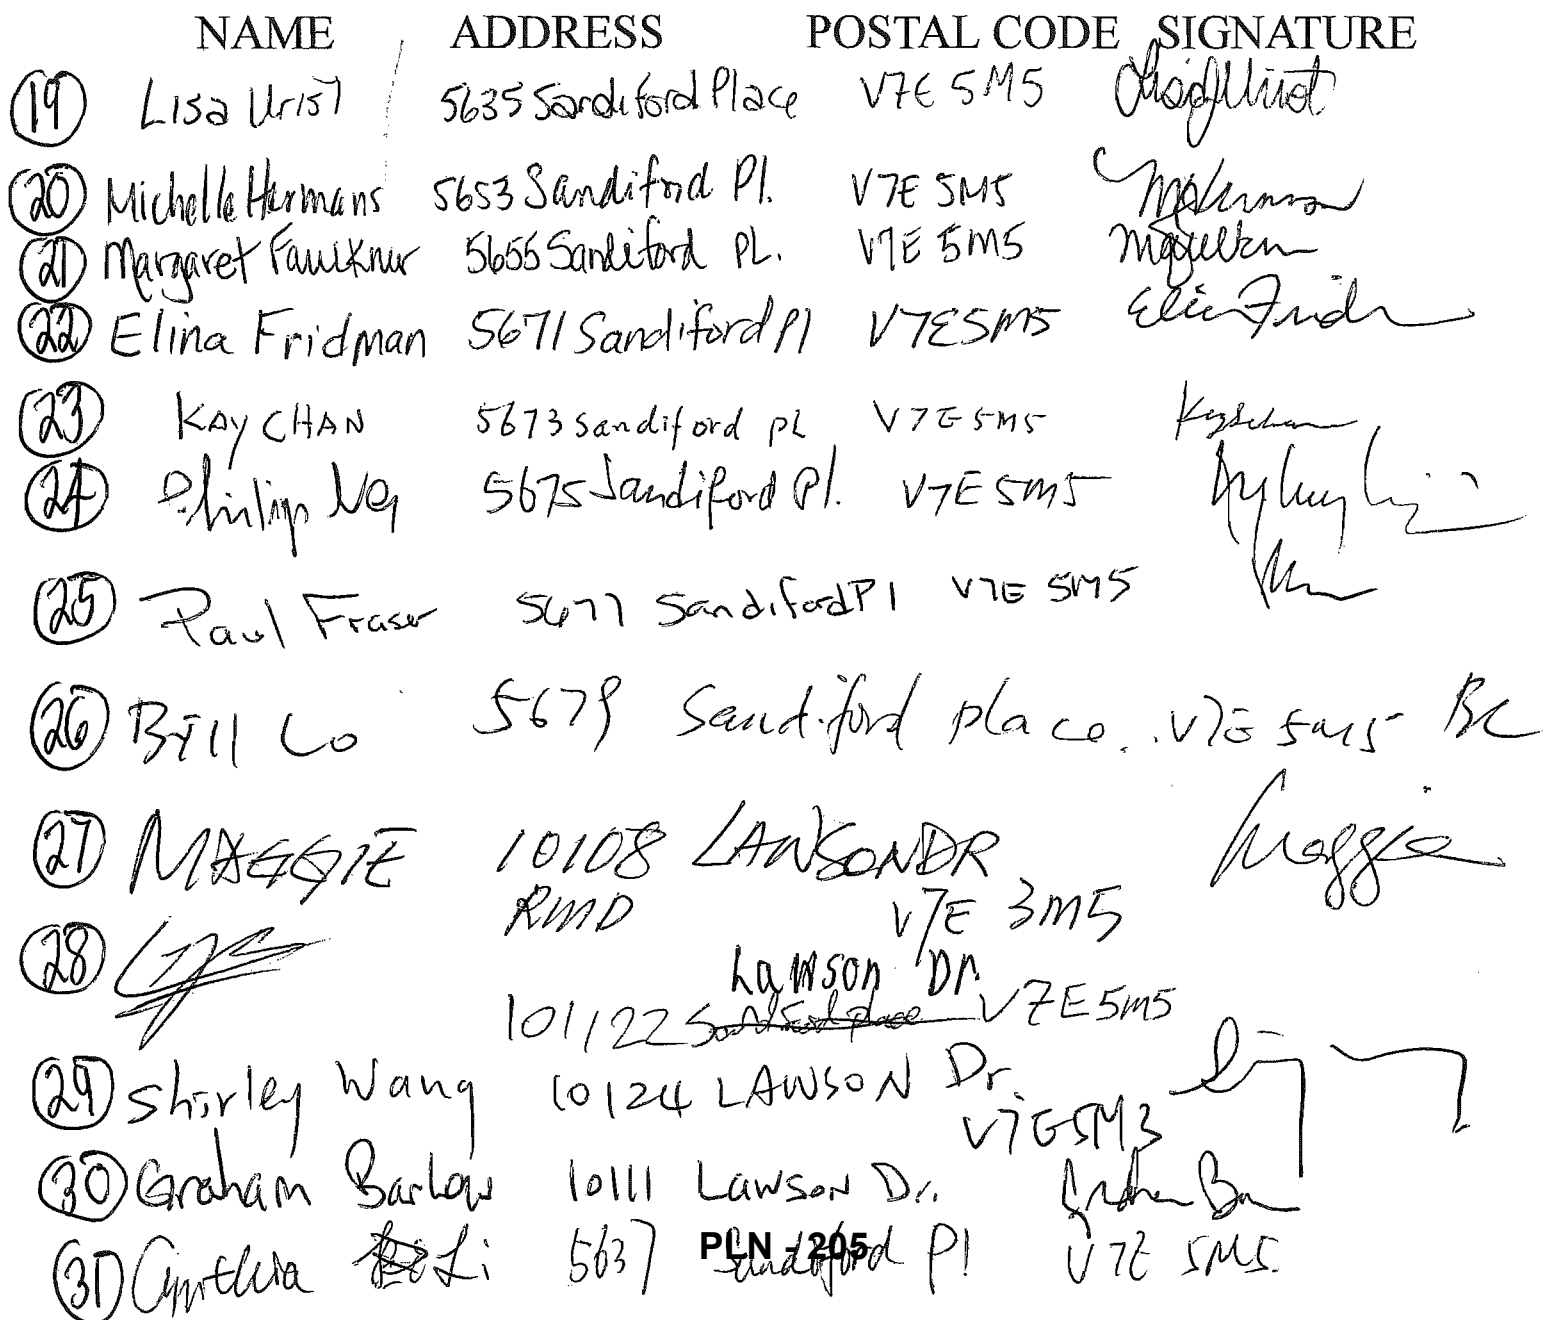 NAME ADDRESS POSTAL CODE SIGNATURE
19 Lisa Urist 5635 Sandiford Place V7E 5M5
20 Michelle Hermans 5653 Sandiford Pl. V7E 5M5
21 Margaret Faulkner 5655 Sandiford PL. V7E 5M5
22 Elina Fridman 5671 Sandiford Pl V7E5M5
23 KAY CHAN 5673 Sandiford PL V7E5M5
24 Philip Ng 5675 Sandiford Pl. V7E 5M5
25 Paul Fraser 5677 Sandiford Pl V7E 5M5
26 Bill Lo 5679 Sandiford place. V7E 5M5
27 MAGGIE 10108 LAWSON DR Maggie
RMD V7E 3M5
28
Lawson Dr.
101122 V7E5M5
29 Shirley Wang 10124 LAWSON Dr.
V7E5M3
30 Graham Barlow 10111 LAWSON Dr.
31 Cynthia Li 5637 Sandiford Pl V7E 5M5.
PLN - 205